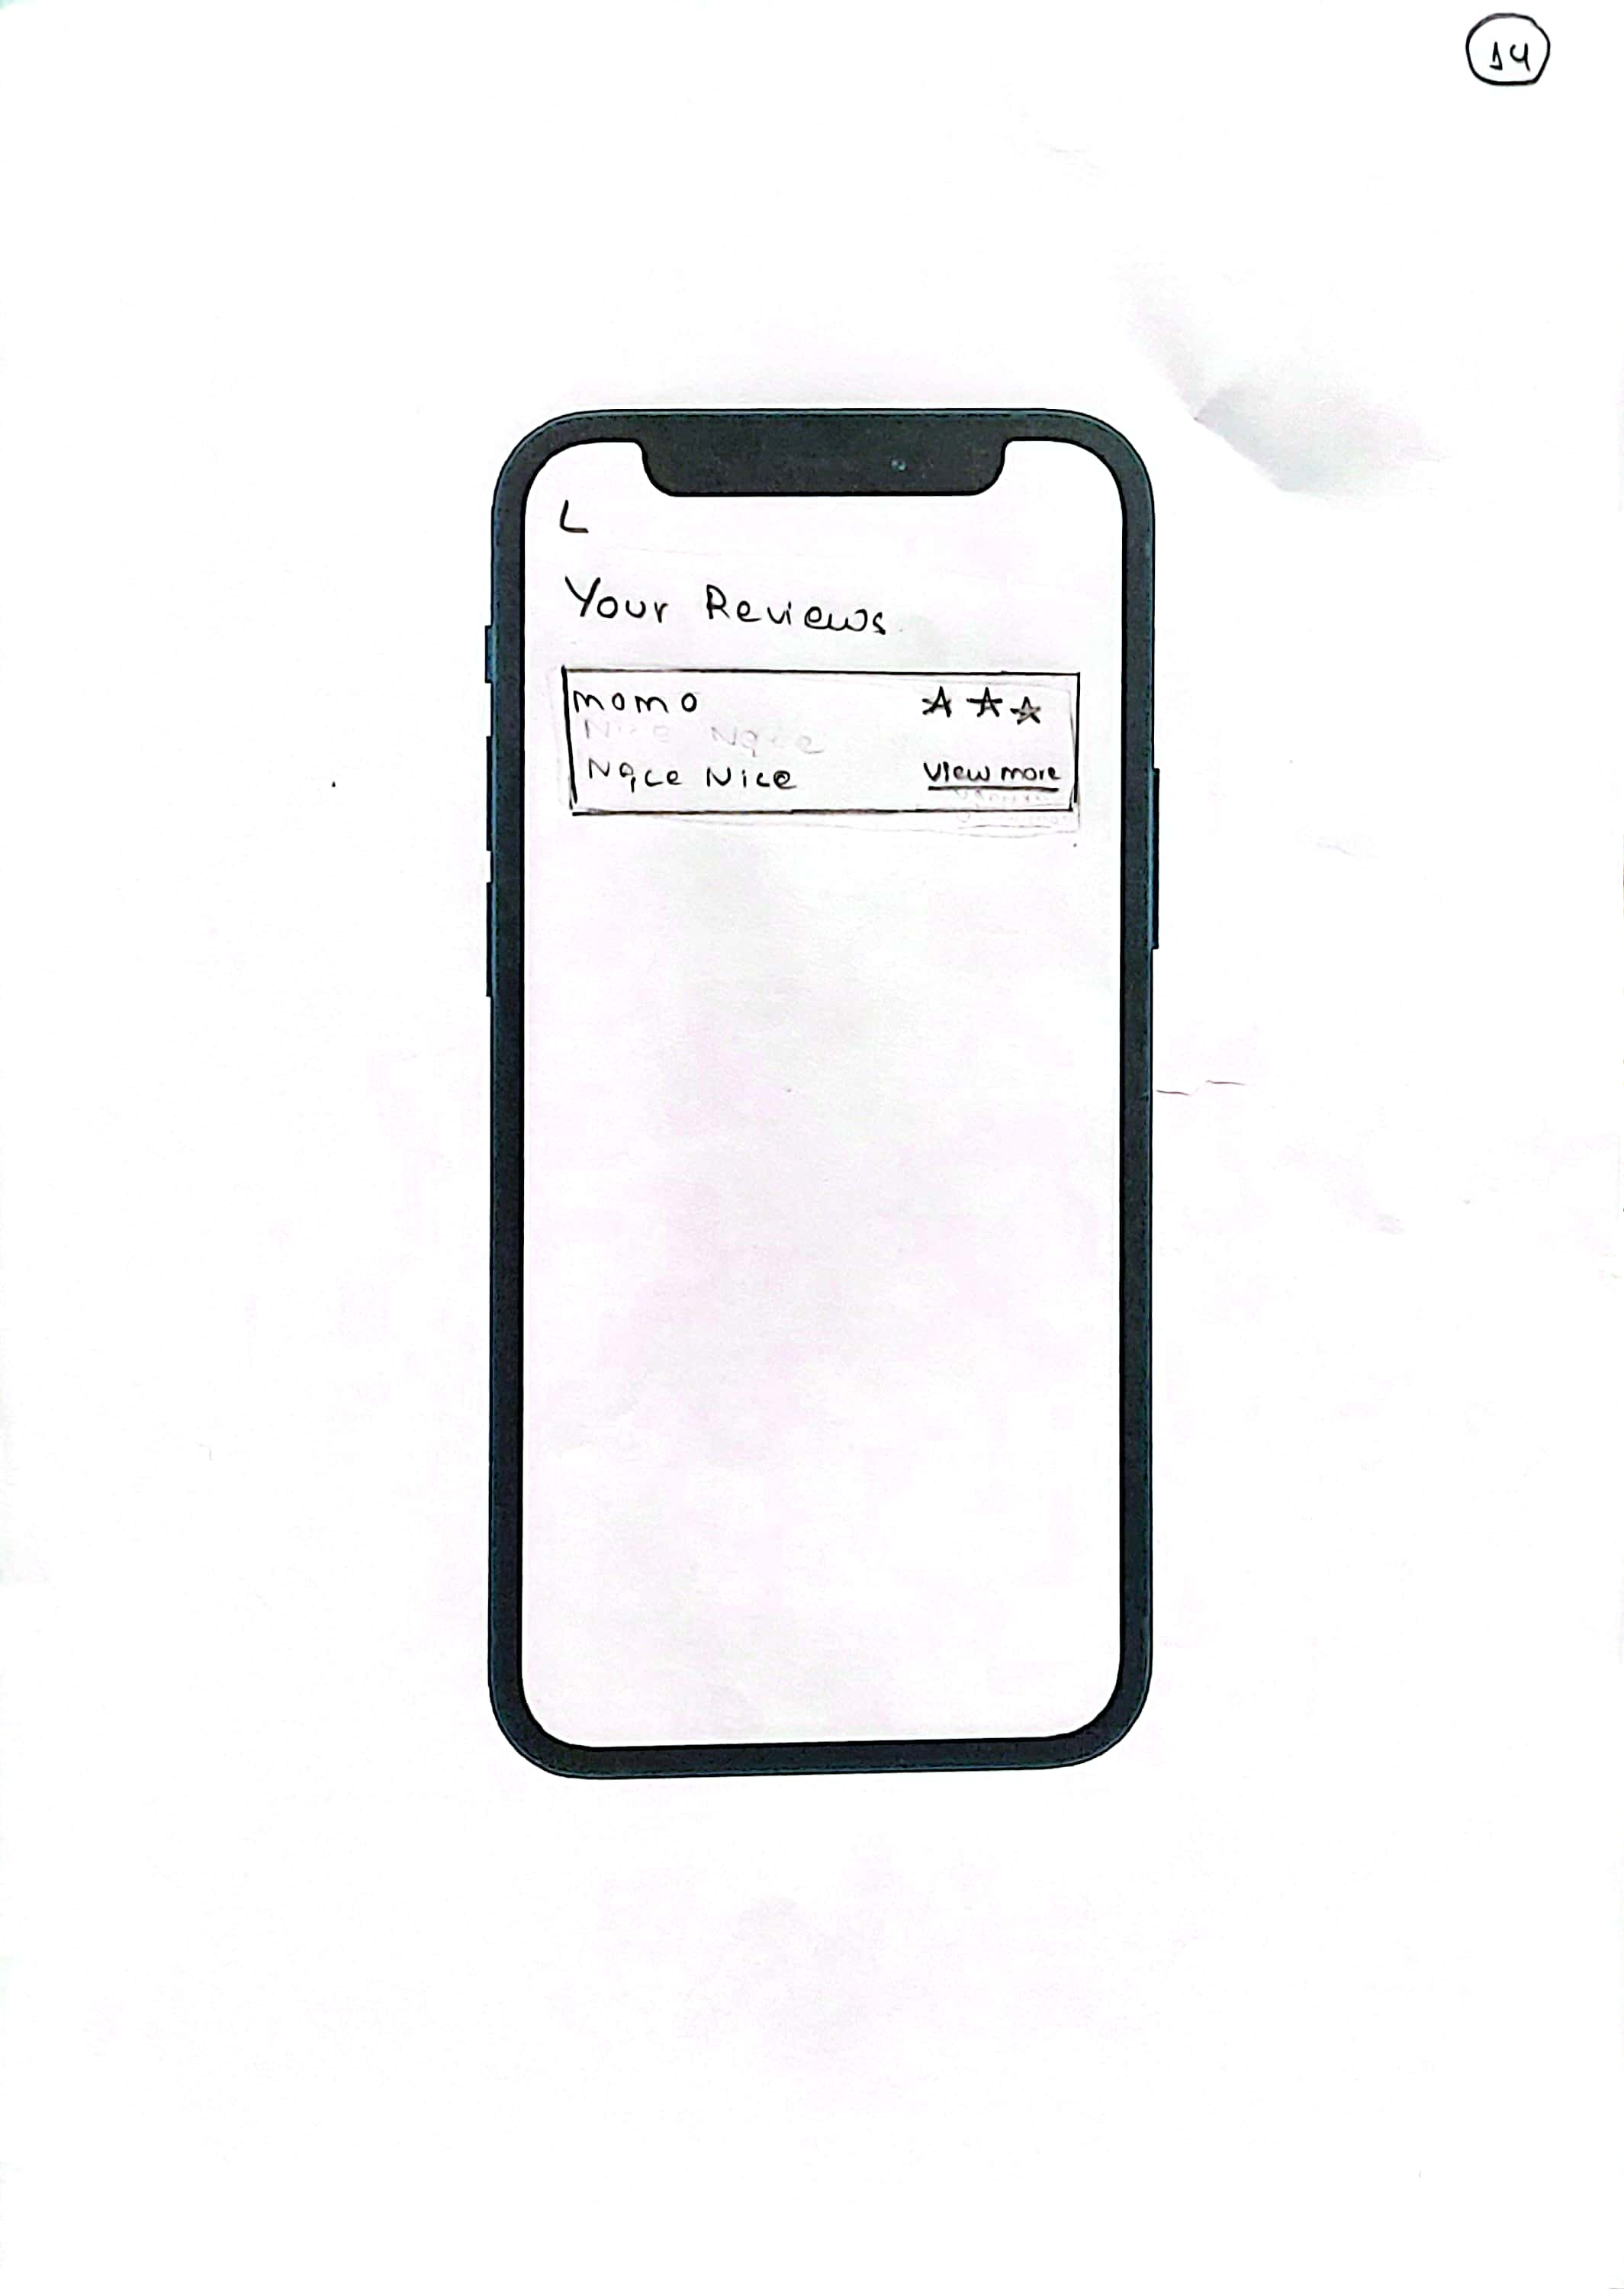 14
L
Your Reviews
momo
★ ★ ★
Nqce Nice
View more